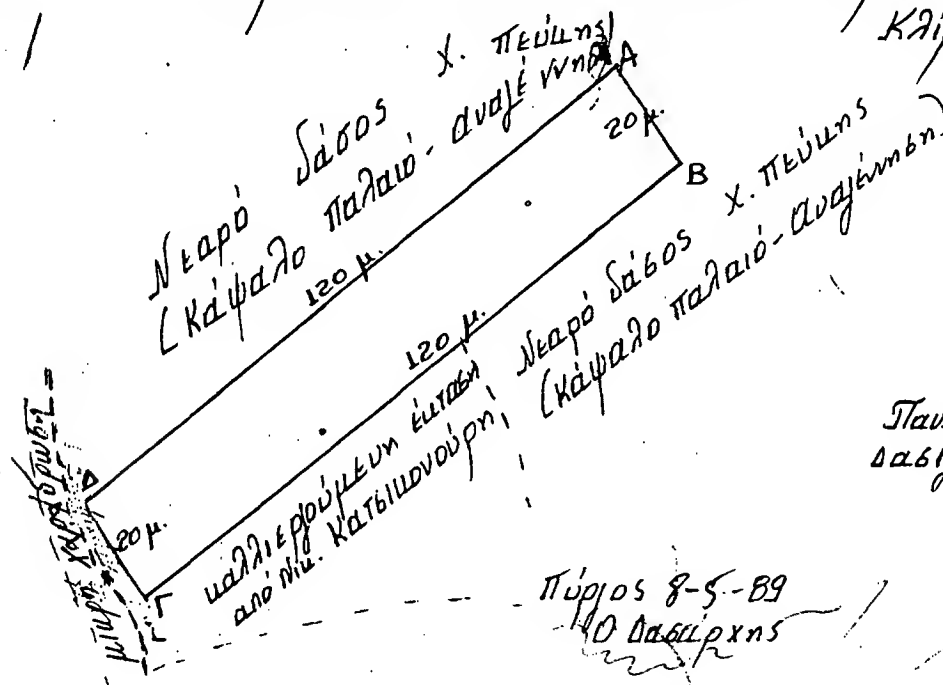 Κλί
Νεαρό δάσος χ. πεύκης
(κάψαλο παλαιό-αναγέννηση)
Α
20 μ.
Β
120 μ.
120 μ.
Νεαρό δάσος χ. πεύκης
(κάψαλο παλαιό-αναγέννηση)
Δ
20 μ.
Γ
καλλιεργούμενη έκταση
από Νικ. Κατσικονούρη
Παν
Δασ
Πύργος 8-5-89
Ο Δασάρχης